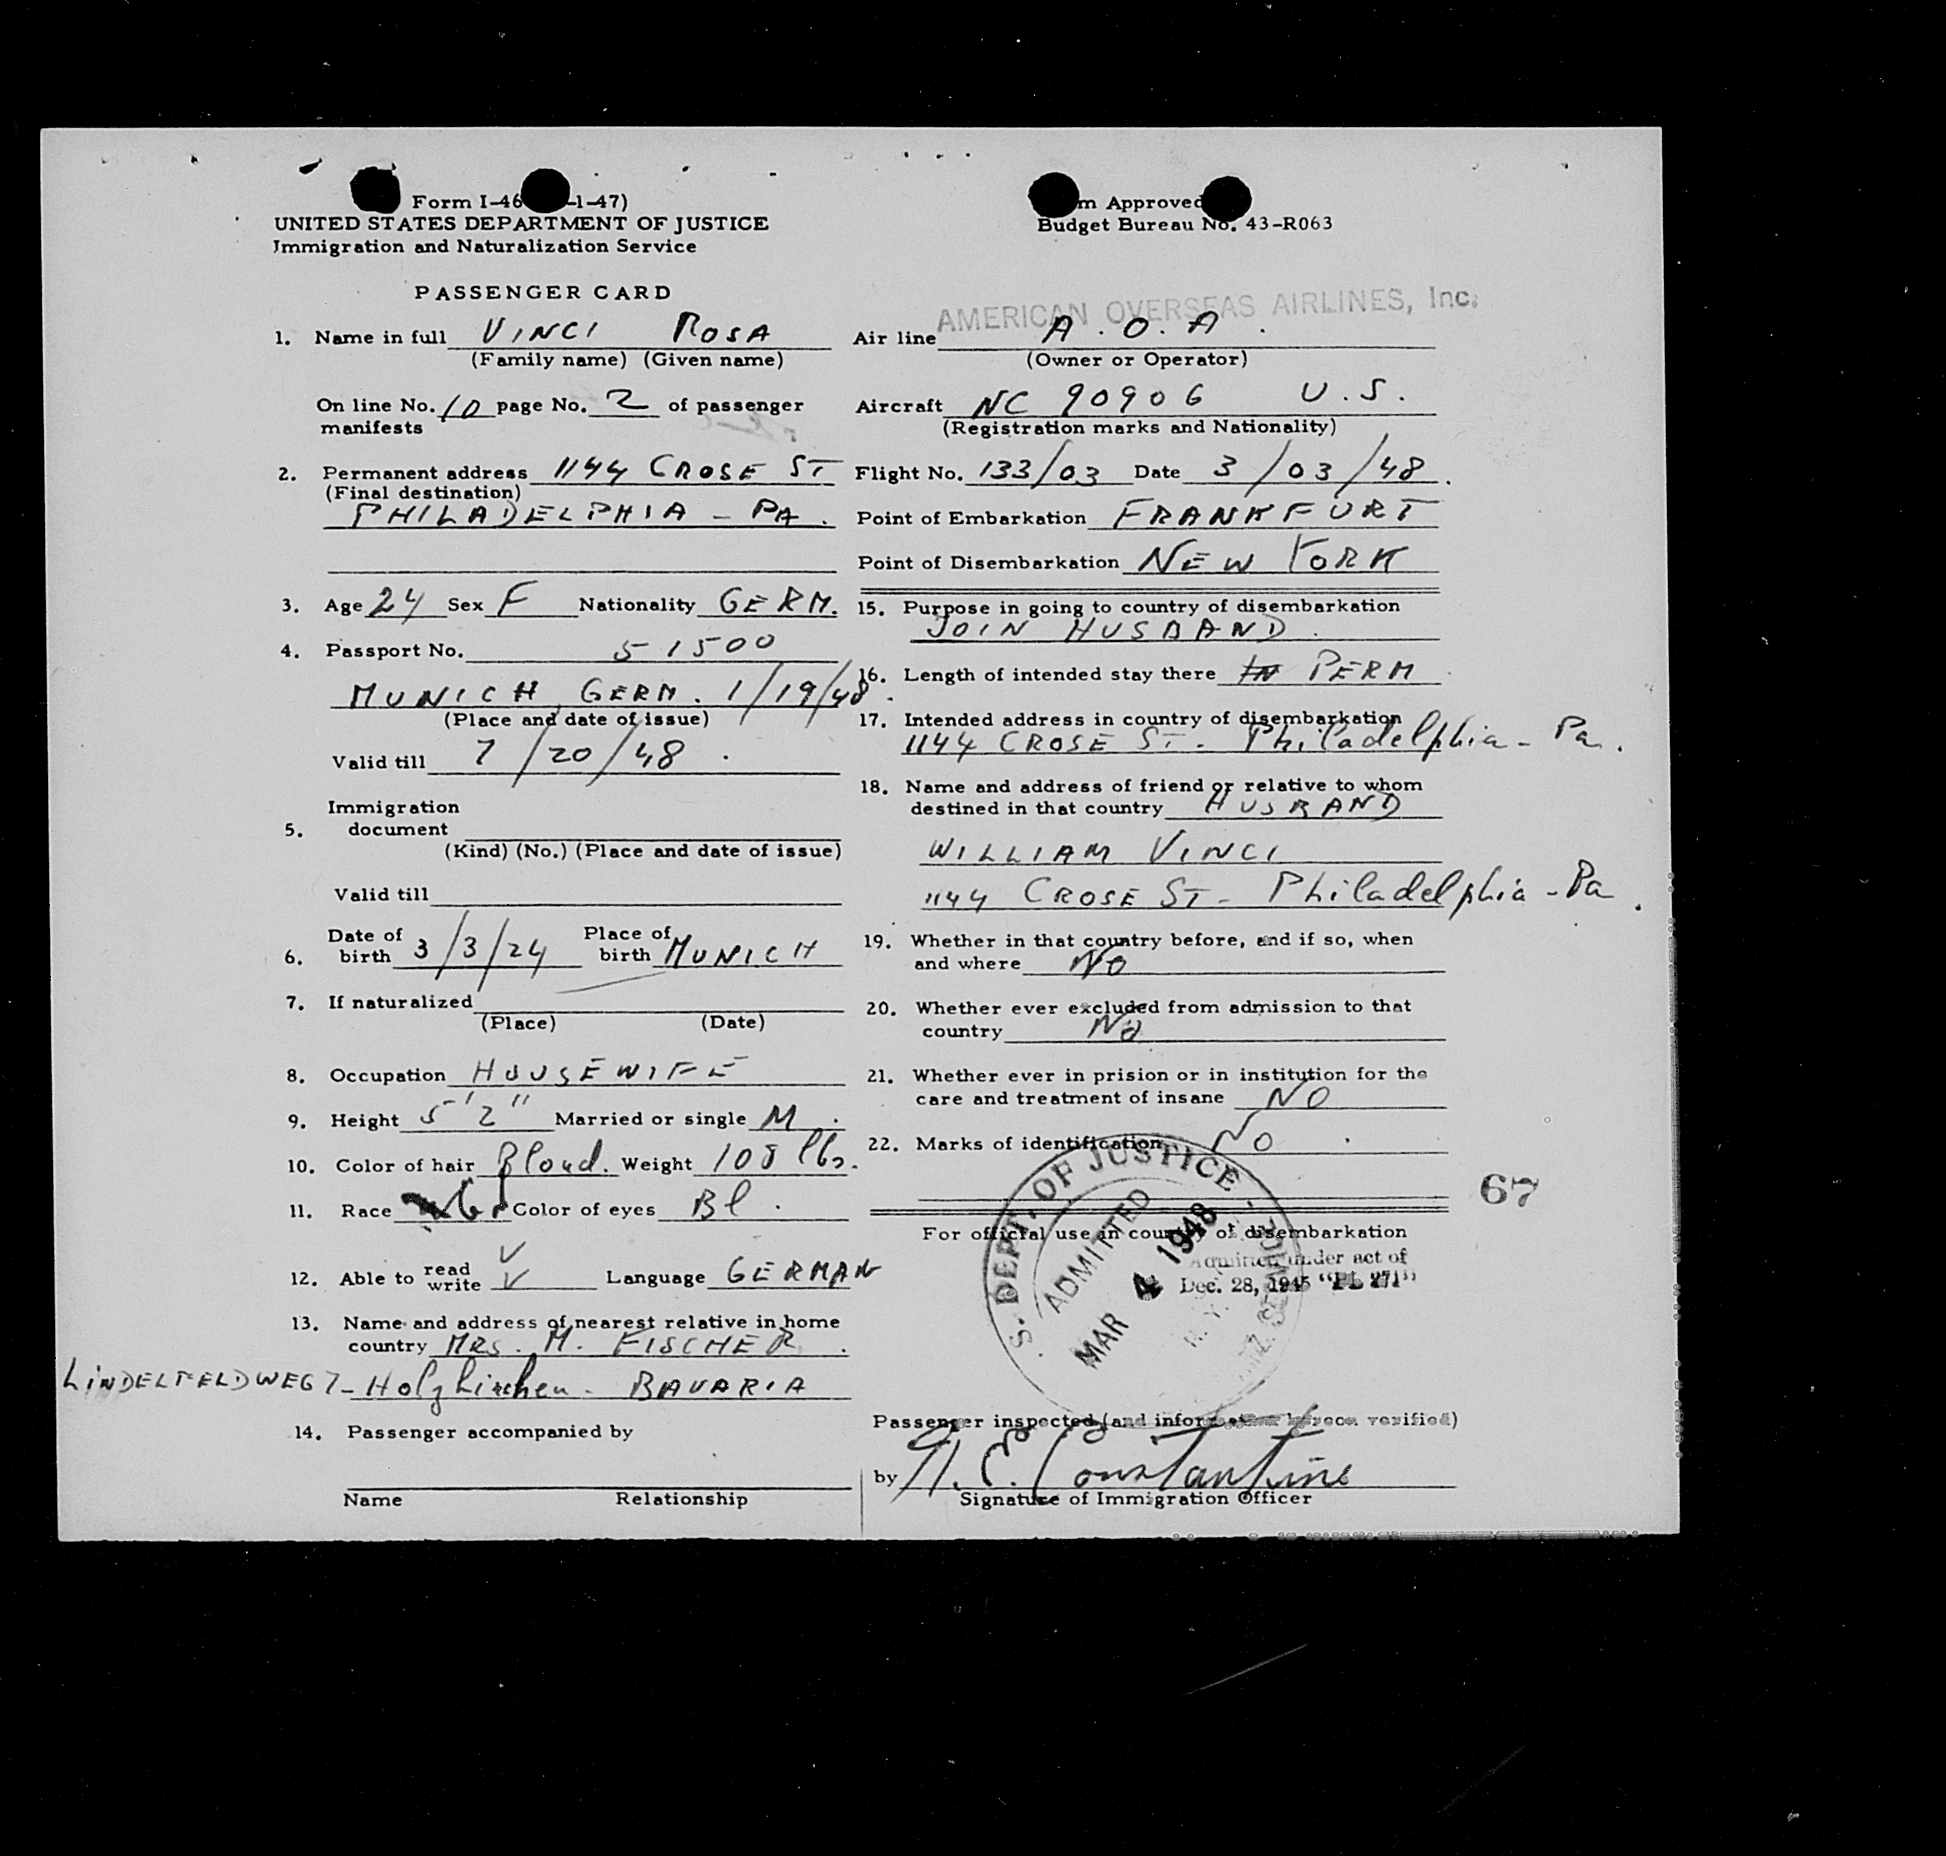 Form I-46 -1-47)
UNITED STATES DEPARTMENT OF JUSTICE
Immigration and Naturalization Service
PASSENGER CARD
1. Name in full VINCI ROSA
(Family name) (Given name)
On line No. 10 page No. 2 of passenger
manifests
2. Permanent address 1144 CROSE ST
(Final destination)
PHILADELPHIA - PA.
3. Age 24 Sex F Nationality GERM.
4. Passport No. 51500
MUNICH, GERM. 1/19/48.
(Place and date of issue)
Valid till 7/20/48.
Immigration
5. document
(Kind) (No.) (Place and date of issue)
Valid till
6. Date of birth 3/3/24 Place of birth MUNICH
7. If naturalized
(Place) (Date)
8. Occupation HOUSEWIFE
9. Height 5'2" Married or single M.
10. Color of hair Blond. Weight 108 lbs.
11. Race Color of eyes Bl.
12. Able to read V write V Language GERMAN
13. Name and address of nearest relative in home
country MRS. M. FISCHER.
LINDELFELDWEG 7- Holzkirchen - BAVARIA
14. Passenger accompanied by
Name Relationship
m Approved
Budget Bureau No. 43-R063
AMERICAN OVERSEAS AIRLINES, Inc.
Air line A.O.A.
(Owner or Operator)
Aircraft NC 90906 U.S.
(Registration marks and Nationality)
Flight No. 133/03 Date 3/03/48.
Point of Embarkation FRANKFURT
Point of Disembarkation NEW YORK
15. Purpose in going to country of disembarkation
JOIN HUSBAND.
16. Length of intended stay there IN PERM
17. Intended address in country of disembarkation
1144 CROSE ST. Philadelphia - Pa.
18. Name and address of friend or relative to whom
destined in that country HUSBAND
WILLIAM VINCI
1144 CROSE ST - Philadelphia - Pa.
19. Whether in that country before, and if so, when
and where NO
20. Whether ever excluded from admission to that
country No
21. Whether ever in prision or in institution for the
care and treatment of insane NO
22. Marks of identification No.
67
For official use in country of disembarkation
Admitted under act of
Dec. 28, 1945 "PL 271"
S. DEPT. OF JUSTICE
ADMITTED
MAR 4 1948
Passenger inspected (and information hereon verified)
by N. E. Constantine
Signature of Immigration Officer